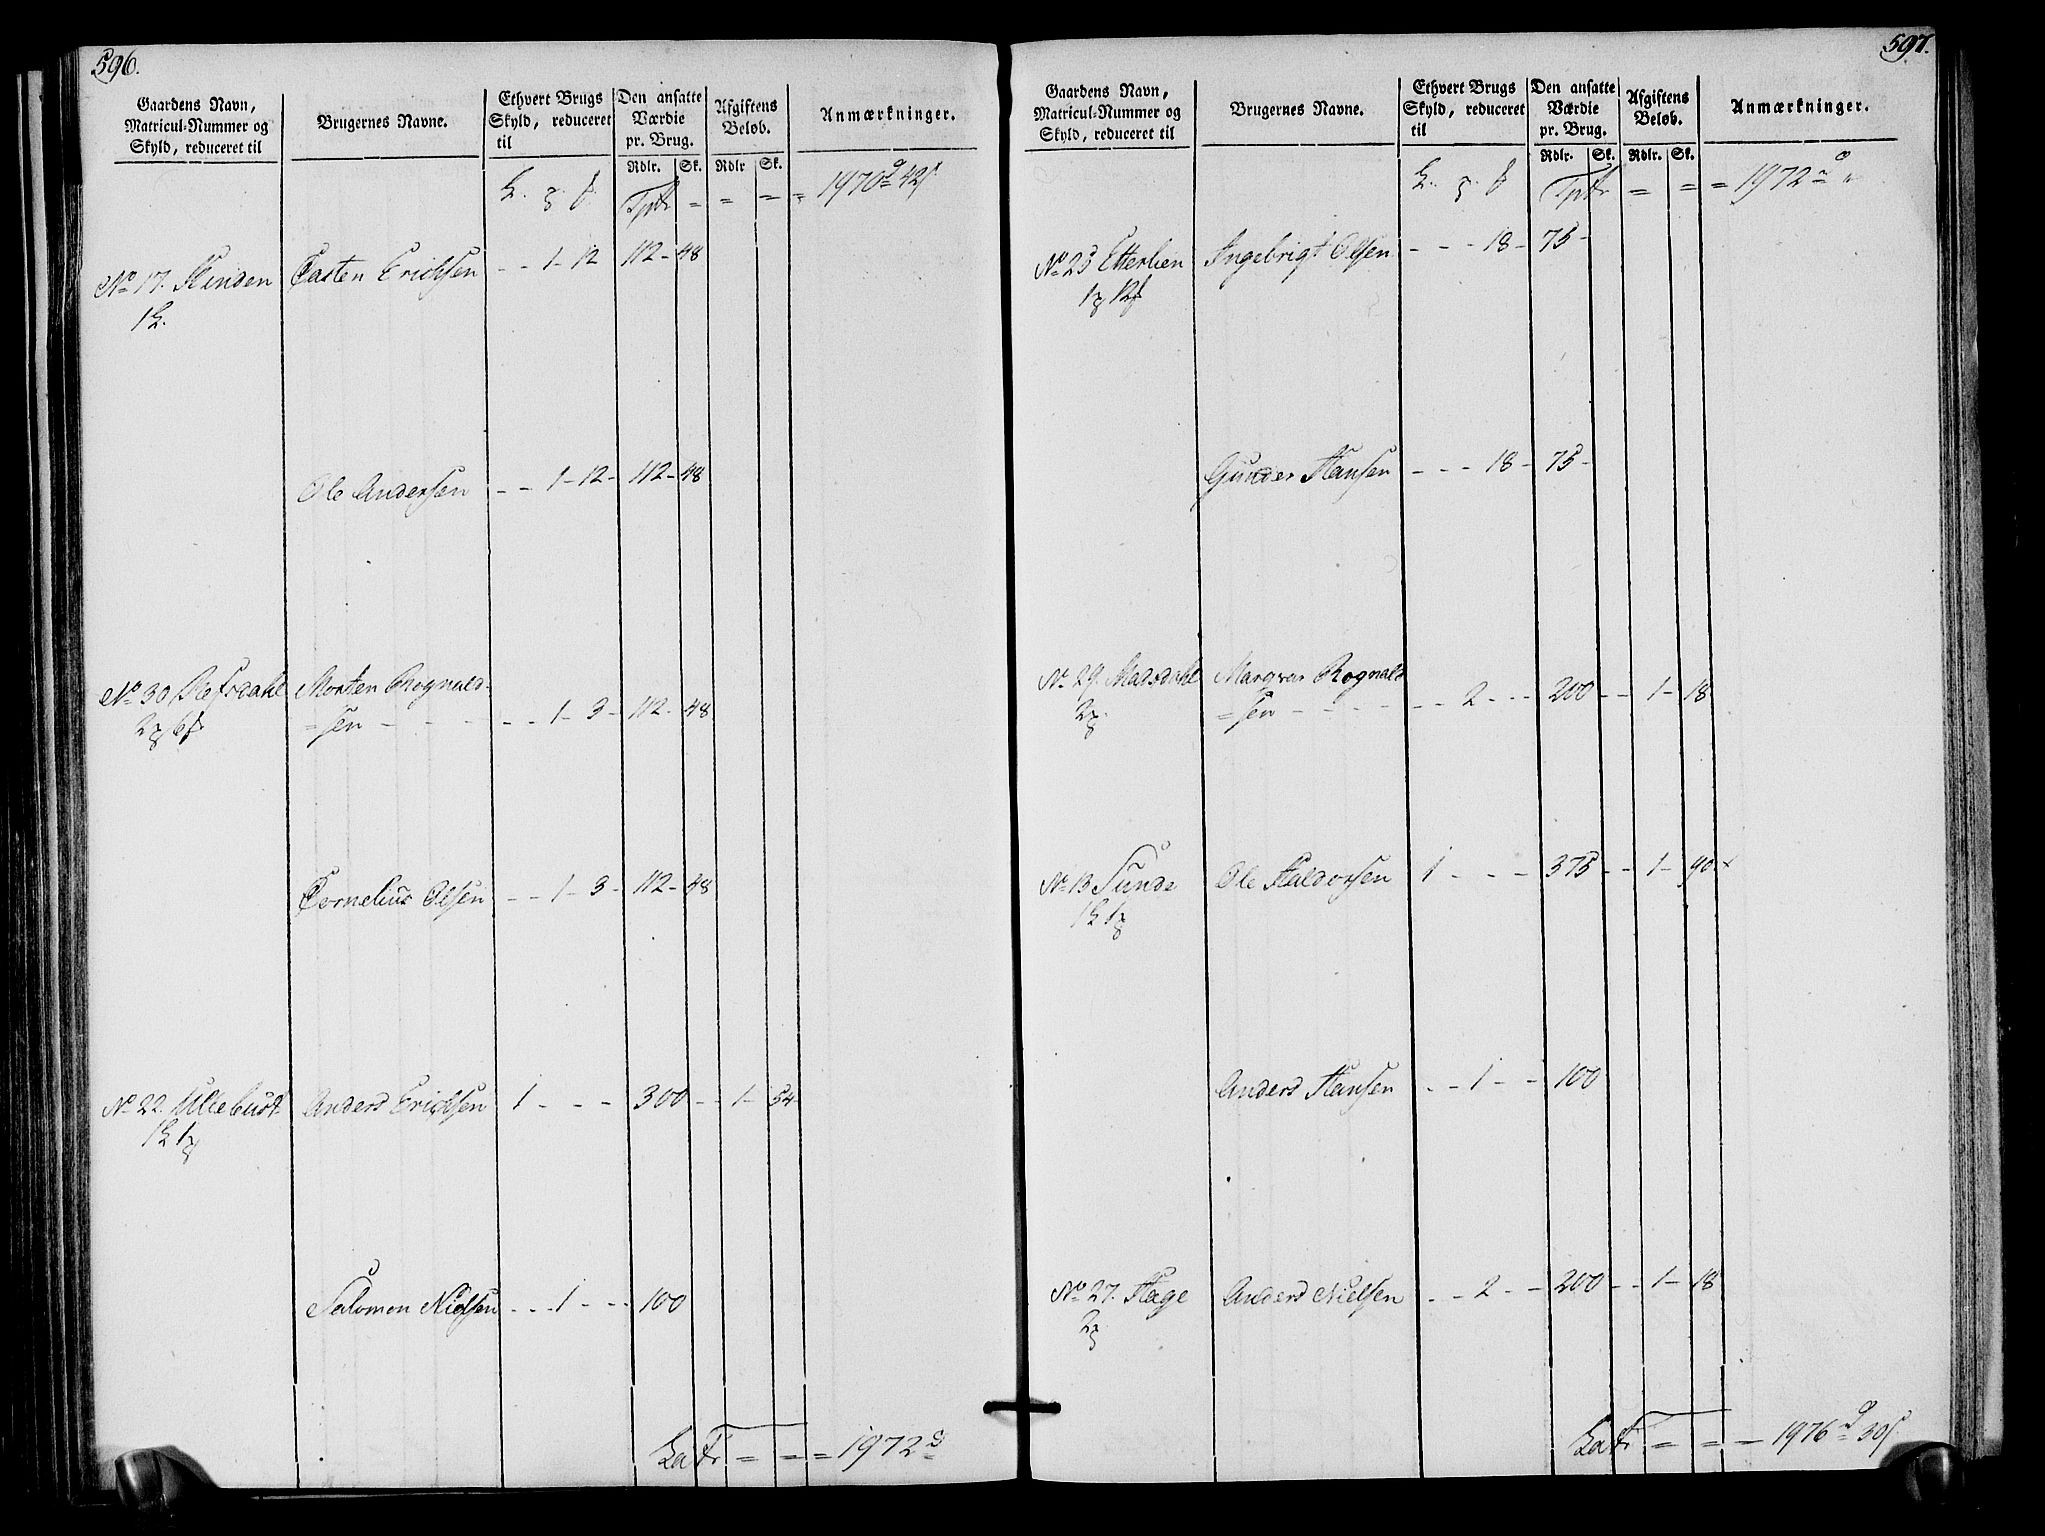 596.
Gaardens Navn,
Matricul-Nummer og
Skyld, reduceret til
Brugernes Navne.
Ethvert Brugs
Skyld, reduceret
til
Den ansatte
Værdie
pr. Brug.
Rdlr. Sk.
Afgiftens
Beløb.
Rdlr Sk.
Anmærkninger.
Tptr = = = = 1970 42
No 17. Hinden Casten Erichsen - - 1 - 12 112 - 48
1
Ole Andersen - - 1 - 12 - 112 - 48
No 30 Refsdahl Morten Rognald-
2 6 =sen - - - - - 1 - 3 - 112 - 48
Cornelius Olsen - - 1 - 3 - 112 - 48
No 22. Ullebust Anders Erichsen 1 - - - 300 - - 1 - 54
1 1
Salomon Nielsen - - - 1 - - - 100
LaTr = = = 1972
597.
Gaardens Navn,
Matricul-Nummer og
Skyld, reduceret til
Brugernes Navne.
Ethvert Brugs
Skyld, reduceret
til
Den ansatte
Værdie
pr. Brug.
Rdlr. Sk.
Afgiftens
Beløb.
Rdlr. Sk.
Anmærkninger.
Tptr = = = 1972
No 23 Etterlien Ingebrigt Olsen - - - 18 - 75 -
1 12
Gunder Hansen - - - 18 - 75 -
No 29. Madsdahl Rognald
2 =sen - - - - - - 2 - - 200 - - 1 - 18
No 13 Sunde Ole Haldorsen 1 - - - 375 - - 1 - 90
1 1
Anders Hansen - - 1 - - 100
No 27. Hage Anders Nielsen - - 2 - - 200 - - 1 - 18
2
LaTr = = - 1976 30